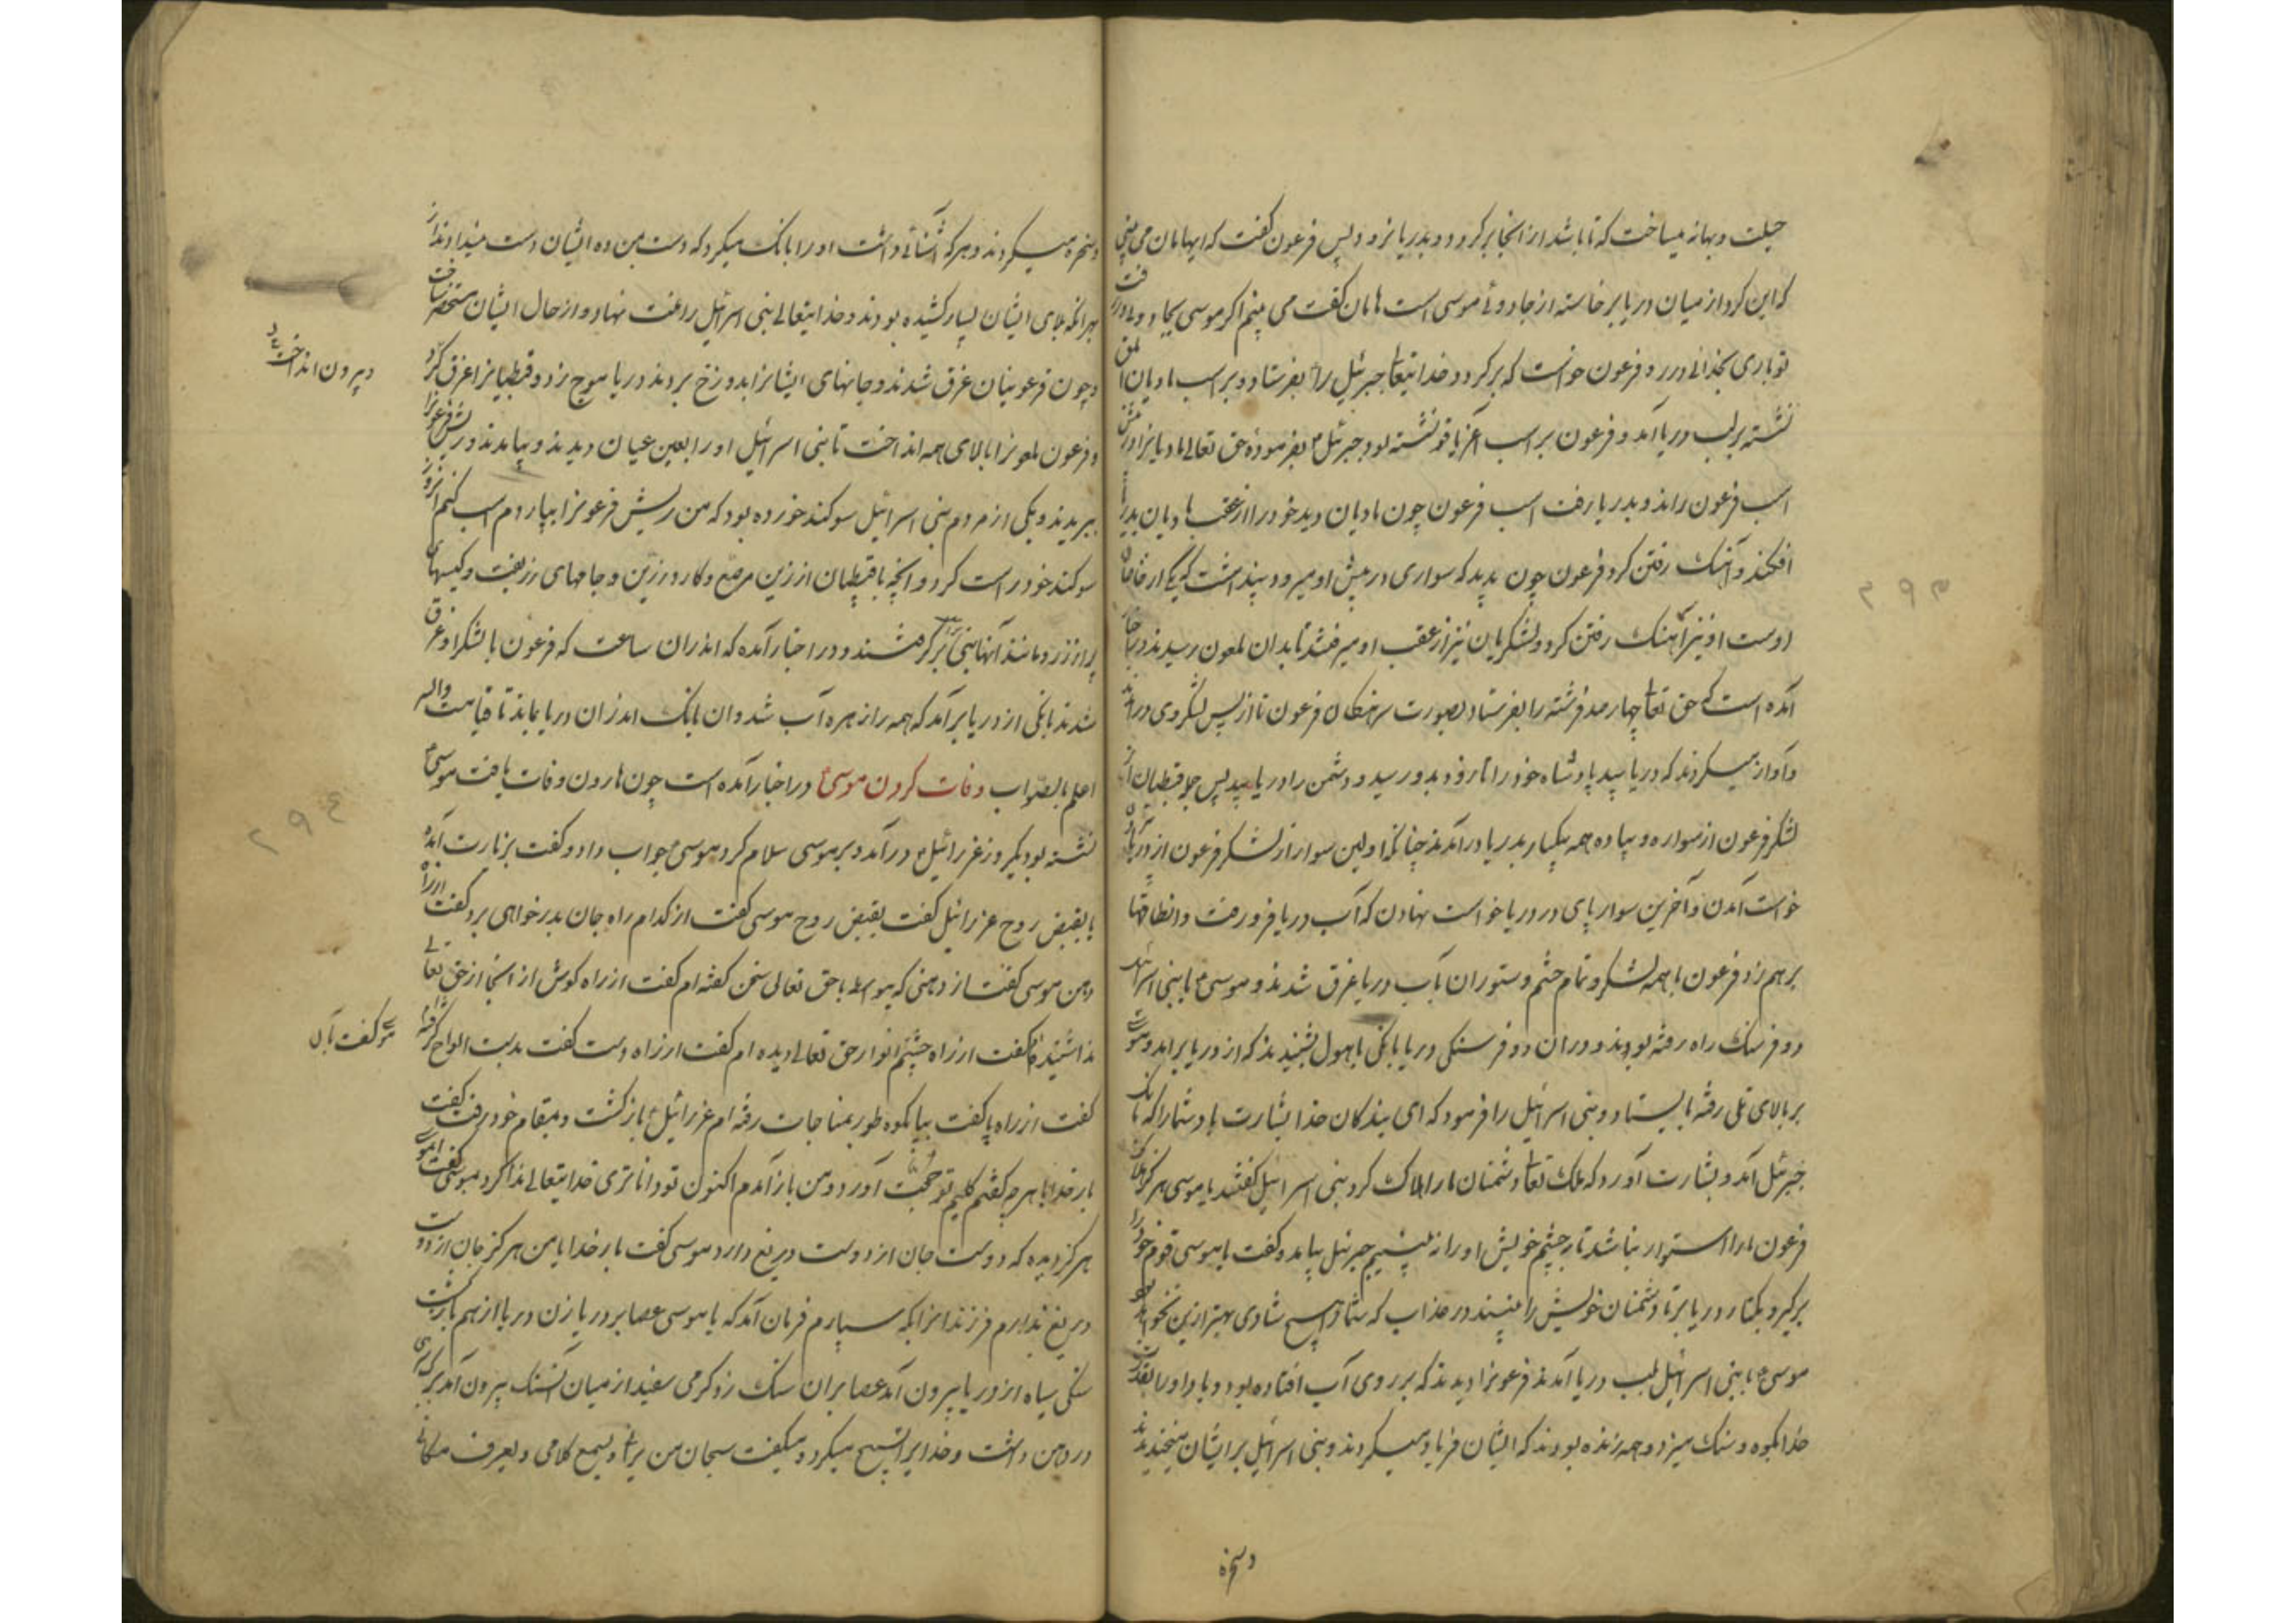 حیلت و بهانه میساخت که تا باشد از آنجا برگردد و بدریا نرود پس فرعون گفت که ایهامان می بینی
که این گرد از میان دریا برخاسته از جادوئ موسی است هامان گفت می بینم اگر موسی بجادوئ در رفت
تو باری بخدائی در رو فرعون خواست که برگردد خدایتعالی جبرئیل را بفرستاد و بر اسب مادیان ابلق
نشسته بر لب دریا آمد و فرعون بر اسب نشسته بود جبرئیل بفرموده حق تعالی مادیانرا در پیش
اسب فرعون راند و بدریا رفت اسب فرعون چون مادیان دید خود را از عقب مادیان بدریا
افکند و آهنک رفتن کرد فرعون چون بدید که سواری در پیش او میرود پنداشت که یکی از خاصان
اوست او نیز آهنک رفتن کرد و لشکریان نیز از عقب او میرفتند تا بدان ملعون رسیدند در اخبار
آمده است که حق تعالی چهار صد فرشته را بفرستاد بصورت سرهنکان فرعون تا از پس لشکر وی در آمدند
و آواز میکردند که دریابید پادشاه خود را تا زود بدو رسید و دشمن را دریابید پس چون قبطیان
لشکر فرعون از سواره و پیاده همه بیکبار بدریا در آمدند چنانکه اولین سوار از لشکر فرعون از دریا
خواست آمدن و آخرین سوار پای در دریا خواست نهادن که آب دریا فرو رفت و آن طاقها
بر هم زد فرعون با همه لشکر و تمام حشم و ستوران بآب دریا غرق شدند و موسی ع با بنی اسرائیل
دو فرسنک راه رفته بودند و در آن دو فرسنکی دریا بانکی با هول بشنیدند که از دریا برآمد و موسی
بر بالای تلی رفته بایستاد و بنی اسرائیل را فرمود که ای بندکان خدا بشارت باد شما را که اینک
جبرئیل آمد و بشارت آورد که ملک تعالی دشمنان ما را هلاک کرد بنی اسرائیل گفتند یا موسی هرگز هلاک
فرعون ما را استوار نباشد تا بچشم خویش او را نبینیم جبرئیل بیامد و گفت یا موسی قوم خود را
برگیر و بکنار دریا بر تا دشمنان خویش را ببینند در عذاب که شما را هیچ شادی بهتر ازین نخواهد بود
موسی ع با بنی اسرائیل بلب دریا آمدند فرعونرا دیدند که بر روی آب افتاده بود و باد او را بقدرت
خدا بکوه و سنک میزد و همه زنده بودند که ایشان فریاد میکردند و بنی اسرائیل بر ایشان میخندیدند
وسخره
وسخره میکردند و هر که آشنائی داشت او را بانک میکرد که دست بمن ده ایشان دست میدادند از
بهر آنکه بلای ایشان بسیار کشیده بودند و خدایتعالی بنی اسرائیل را منت نهاد و از حال ایشان مستخلص ساخت
و چون فرعونیان غرق شدند و جانهای ایشانرا بدوزخ بردند دریا موج زد و قبطیانرا غرق کرد
و بیرون انداخت
و فرعون ملعونرا بالای همه انداخت تا بنی اسرائیل او را بعین عیان دیدند و بیامدند و ریش فرعونرا
ببریدند و یکی از مردم بنی اسرائیل سوکند خورده بود که من ریش فرعونرا پاردم اسب کنم آنروز
سوکند خود راست کرد و آنچه با قبطیان از زین مرصع و کار و زرین و جامهای زربفت و کیسهای
پر از زر و مانند آنها بنی اسرائیل برگرفتند و در اخبار آمده که اندران ساعت که فرعون با لشکر او غرق
شدند بانکی از دریا برآمد که همه را زهره آب شد و آن بانک اندران دریا بماند تا قیامت والله
اعلم بالصواب وفات کردن موسی ع در اخبار آمده است چون هارون وفات یافت موسی ع
نشسته بود یکروز عزرائیل در آمد و بر موسی سلام کرد موسی ع جواب داد و گفت بزیارت آمده
یا بقبض روح عزرائیل گفت بقبض روح موسی گفت از کدام راه جان بدر خواهی برد گفت از راه
دهن موسی گفت از دهنی که بیواسطه با حق تعالی سخن گفته ام گفت از راه کوش از آنجا از حق تعالی
ندا شنیده ام گفت از راه چشم انوار حق تعالی دیده ام گفت از راه دست گفت بدست الواح گرفته
موسی گفت بآن
گفت از راه پا گفت بپا بکوه طور بمناجات رفته ام عزرائیل بازگشت و بمقام خود رفت گفت
بار خدایا هر چه گفتم کلیم تو حجت آورد و من باز آمدم اکنون تو داناتری خدایتعالی ندا کرد بموسی گفت ای موسی
هرگز دیده که دوست جان از دوست دریغ دارد موسی گفت بار خدایا من هرگز جان از دوست
دریغ ندارم فرزندانرا بکه سپارم فرمان آمد که یا موسی عصا بر دریا زن دریا از هم باز گشت
سنکی سیاه از دریا بیرون آمد عصا بران سنک زد کرمی سفید از میان آن سنک بیرون آمد برک سبزی
در دهن داشت و خدایرا تسبیح میکرد و میگفت سبحان من یرانی و یسمع کلامی و یعرف مکانی
۲۹۳
۲۹٤